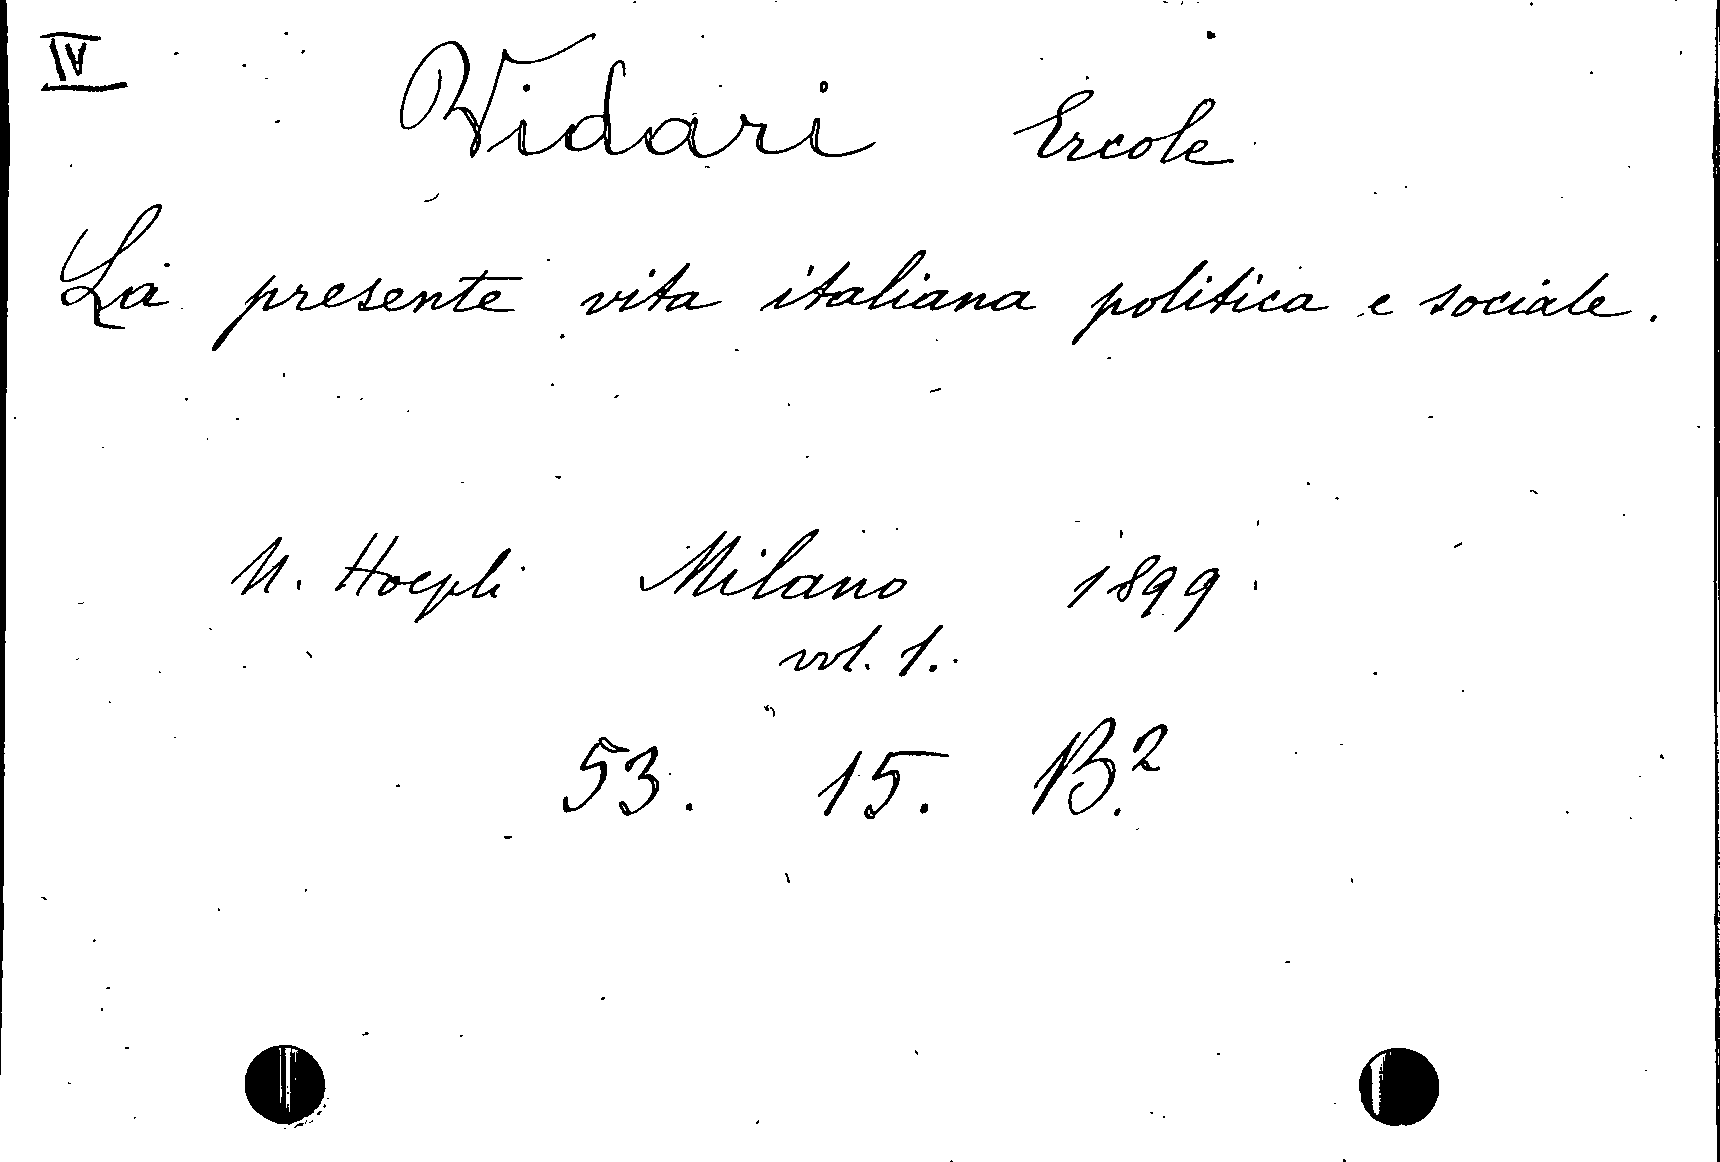 IV
Vidari Ercole
La presente vita italiana politica e sociale.
U. Hoepli Milano 1899.
vol. 1.
53. 15. B.²